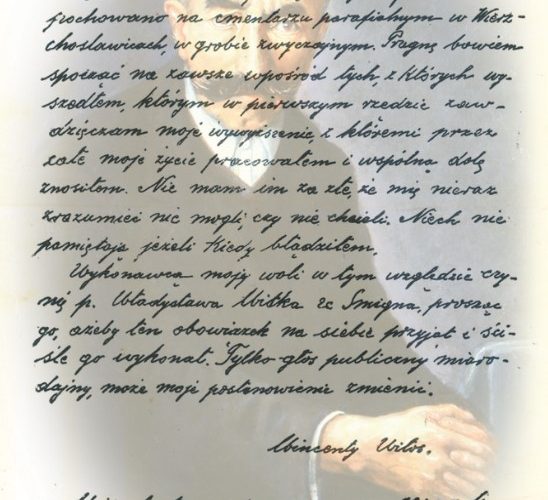 pochowano na cmentarzu parafialnym w Wierz-
chosławicach, w grobie zwyczajnym. Pragnę bowiem
spocząć na zawsze wpośród tych, z których wy-
szedłem, którym w pierwszym rzędzie zaw-
dzięczam moje wywyższenie, z któremi przez
całe moje życie pracowałem i wspólną dolę
znosiłem. Nie mam im za złe, że mię nieraz
zrozumieć nie mogli, czy nie chcieli. Niech nie
pamiętają jeżeli kiedy błądziłem.
Wykonawcą mojej woli w tym względzie czy-
nię p. Władysława Witka ze Śmigna, prosząc
go, ażeby ten obowiązek na siebie przyjął i ści-
śle go wykonał. Tylko głos publiczny miaro-
dajny, może moje postanowienie zmienić.
Wincenty Witos.